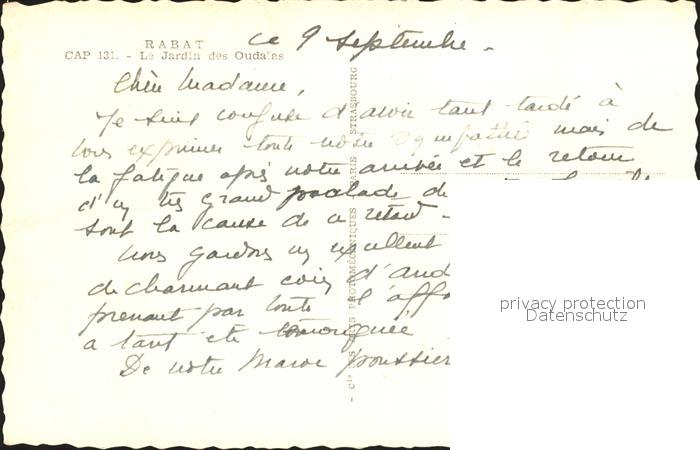 RABAT
CAP 131. - Le Jardin des Oudaïas
ce 9 septembre.
Chère Madame,
Je suis confuse d'avoir tant tardé à
vous exprimer toute notre sympathie mais de
la fatigue après notre arrivée et le retour
d'un très grand malade de
sont la cause de ce retard.
Nous gardons un excellent
de charmant coin d'And
prenant par toute l'affe
a tant été témoignée
De notre Maroc poussier
Cie DES ARTS PHOTOMÉCANIQUES PARIS STRASBOURG
privacy protection
Datenschutz